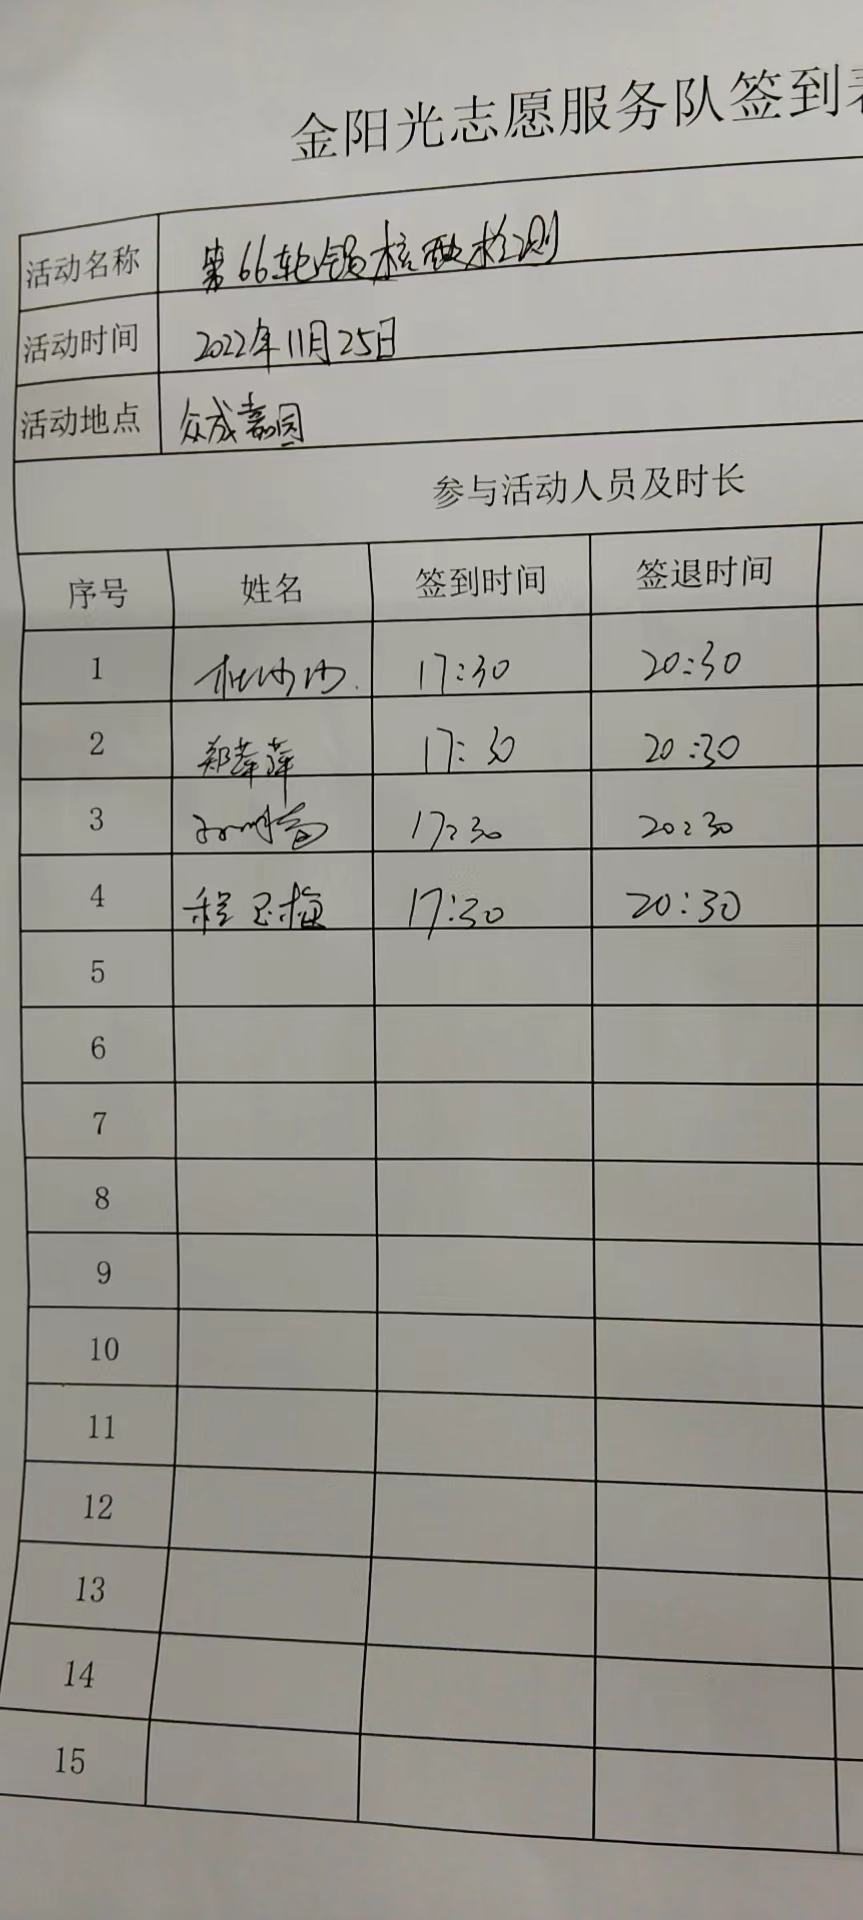 金阳光志愿服务队签到
活动名称 第66轮全员核酸检测
活动时间 2022年11月25日
活动地点 众成嘉园
参与活动人员及时长
序号 姓名 签到时间 签退时间
1 杜沙沙 17:30 20:30
2 郑萍萍 17:30 20:30
3 17:30 20:30
4 程玉梅 17:30 20:30
5
6
7
8
9
10
11
12
13
14
15